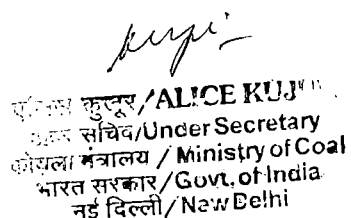 कुजूर/ALICE KUJ
सचिव/Under Secretary
मंत्रालय / Ministry of Coal
भारत सरकार/Govt. of India
नई दिल्ली/New Delhi